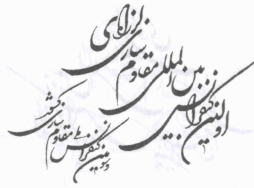 اولین کنفرانس بین المللی مقاوم سازی لرزه‌ای
و دومین کنفرانس مقاوم سازی کشور